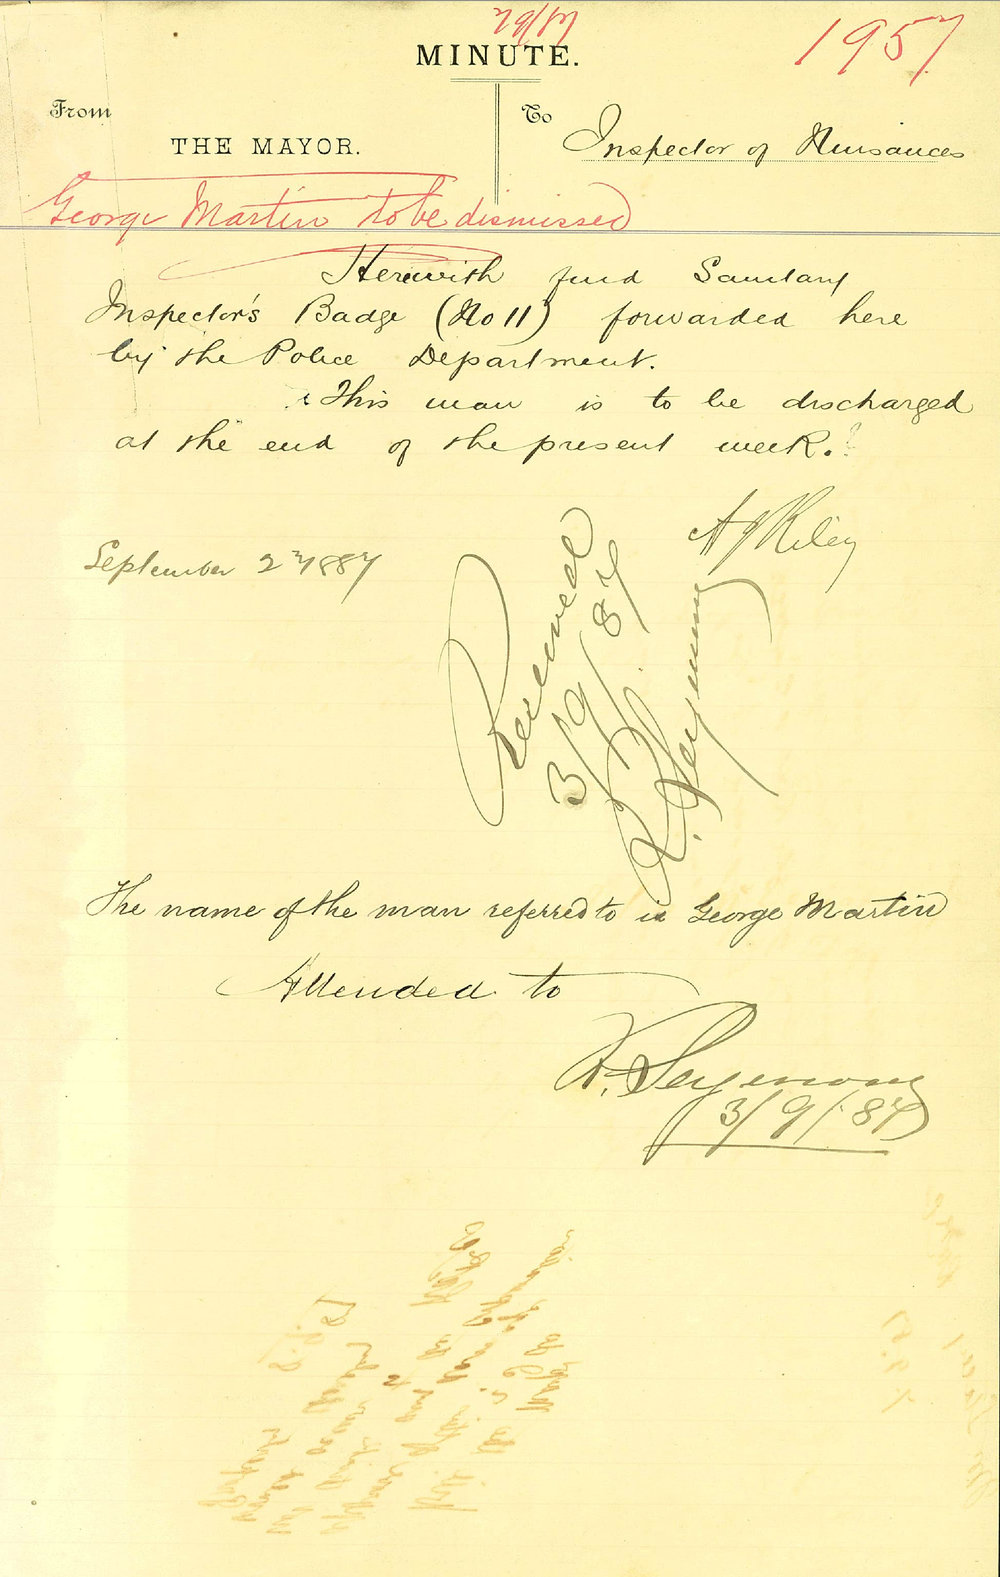 MINUTE.
1957
From
To
THE MAYOR.
Inspector of Nuisances
George Martin to be dismissed
Herewith find Sanitary
Inspector's Badge (No 11) forwarded here
by the Police Department.
This man is to be discharged
at the end of the present week.
A J Riley
September 2nd 1887
Received
3/9/87
R. Seymour
The name of the man referred to is George Martin
Attended to
R. Seymour
3/9/87